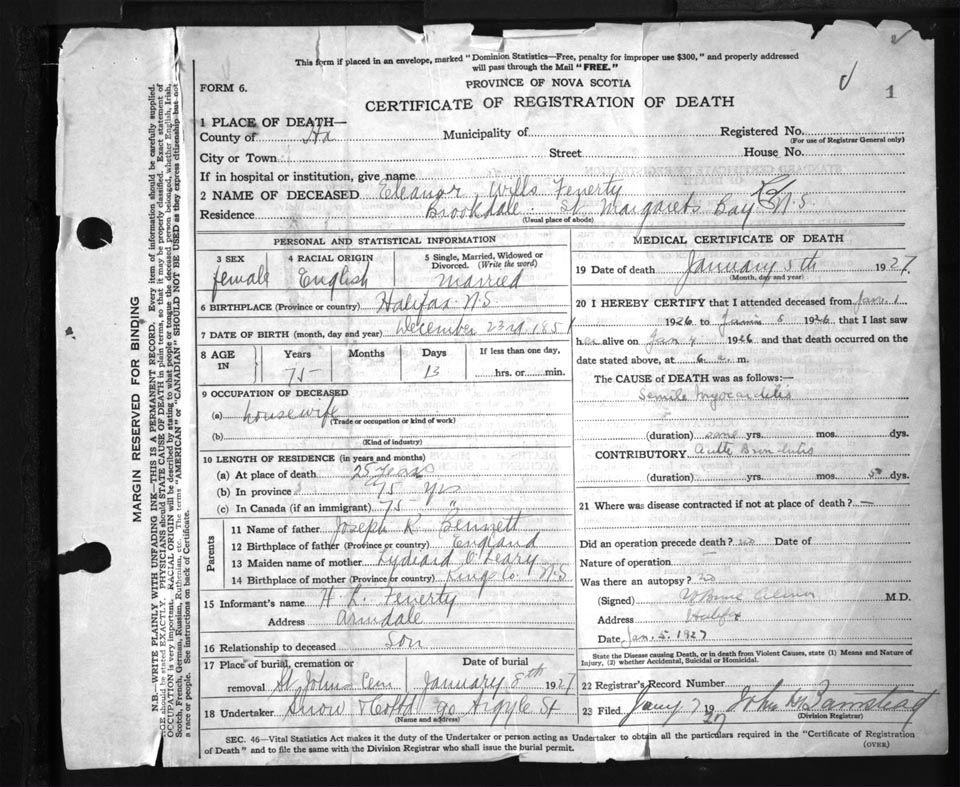 This form if placed in an envelope, marked "Dominion Statistics—Free, penalty for improper use $300," and properly addressed
will pass through the Mail "FREE."
FORM 6.
PROVINCE OF NOVA SCOTIA
1
CERTIFICATE OF REGISTRATION OF DEATH
1 PLACE OF DEATH—
County of Hx Municipality of Registered No.
(For use of Registrar General only)
City or Town Street House No.
If in hospital or institution, give name
2 NAME OF DECEASED Eleanor Wills Fenerty
Residence Brookdale St. Margarets Bay Rd N.S
(Usual place of abode)
PERSONAL AND STATISTICAL INFORMATION
3 SEX 4 RACIAL ORIGIN 5 Single, Married, Widowed or
Divorced. (Write the word)
female English Married
6 BIRTHPLACE (Province or country) Halifax N.S
7 DATE OF BIRTH (month, day and year) December 23rd 1851
8 AGE IN Years Months Days If less than one day,
75 13 hrs. or min.
9 OCCUPATION OF DECEASED
(a) housewife
(Trade or occupation or kind of work)
(b)
(Kind of industry)
10 LENGTH OF RESIDENCE (in years and months)
(a) At place of death 25 years
(b) In province 75 yrs
(c) In Canada (if an immigrant) 75 "
Parents
11 Name of father Joseph R. Bennett
12 Birthplace of father (Province or country) England
13 Maiden name of mother O'Leary
14 Birthplace of mother (Province or country) Kings Co. N.S
15 Informant's name H. L. Fenerty
Address Armdale
16 Relationship to deceased Son
17 Place of burial, cremation or Date of burial
removal St Johns Cem January 8th 1927
18 Undertaker Snow & Co Ltd 90 Argyle St
(Name and address)
MEDICAL CERTIFICATE OF DEATH
19 Date of death January 5th 1927
(Month, day and year)
20 I HEREBY CERTIFY that I attended deceased from Jan. 1
1926 to Jan. 5 1926 that I last saw
her alive on Jan 4 1926 and that death occurred on the
date stated above, at 6 a. m.
The CAUSE of DEATH was as follows:—
Senile Myocarditis
(duration) some yrs. mos. dys.
CONTRIBUTORY acute Bronchitis
(duration) yrs. mos. 5 dys.
21 Where was disease contracted if not at place of death? —
Did an operation precede death? no Date of
Nature of operation
Was there an autopsy? no
(Signed) M.D.
Address Halifax
Date Jan. 5. 1927
State the Disease causing Death, or in death from Violent Causes, state (1) Means and Nature of
Injury, (2) whether Accidental, Suicidal or Homicidal.
22 Registrar's Record Number
23 Filed Jany 7 1927 John
(Division Registrar)
SEC. 46—Vital Statistics Act makes it the duty of the Undertaker or person acting as Undertaker to obtain all the particulars required in the "Certificate of Registration
of Death" and to file the same with the Division Registrar who shall issue the burial permit.
(OVER)
MARGIN RESERVED FOR BINDING
N.B.—WRITE PLAINLY WITH UNFADING INK—THIS IS A PERMANENT RECORD. Every item of information should be carefully supplied.
AGE should be stated EXACTLY. PHYSICIANS should STATE CAUSE OF DEATH in plain terms, so that it may be properly classified. Exact statement of
OCCUPATION is very important. RACIAL ORIGIN will be described by stating to what people or tongue the deceased person belonged, whether English, Irish,
Scotch, French, German, Russian, Ruthenian, etc. The terms "AMERICAN" or "CANADIAN" SHOULD NOT BE USED as they express citizenship but not
a race or people. See instructions on back of Certificate.